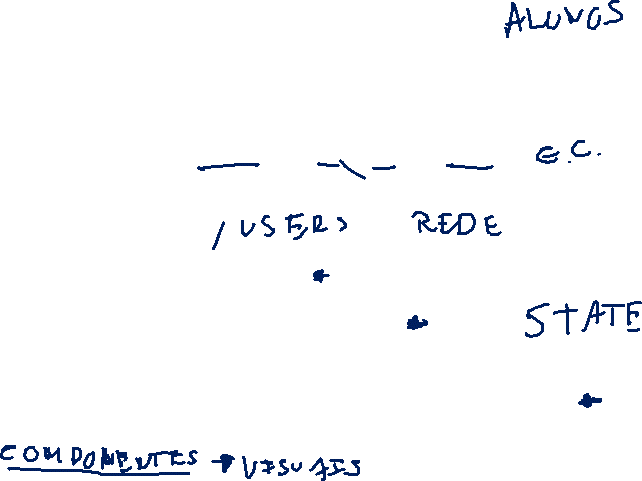 ALUNOS
E.C.
/USERS REDE
STATE
COMPONENTES → VISUAIS